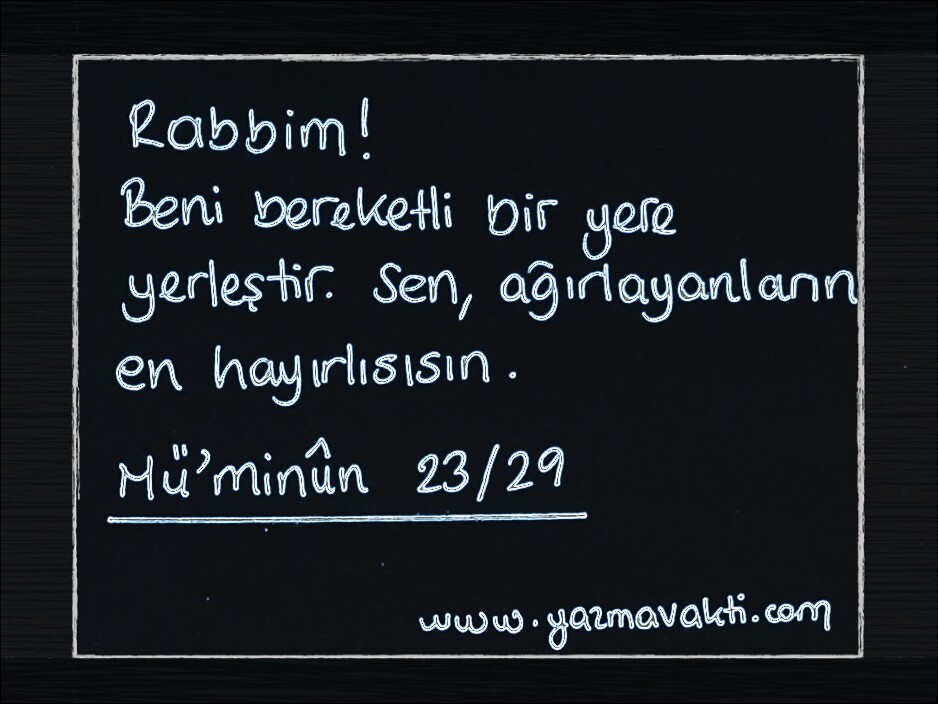 Rabbim!
Beni bereketli bir yere
yerleştir. Sen, ağırlayanların
en hayırlısısın.
Mü'minûn 23/29
www.yazmavakti.com